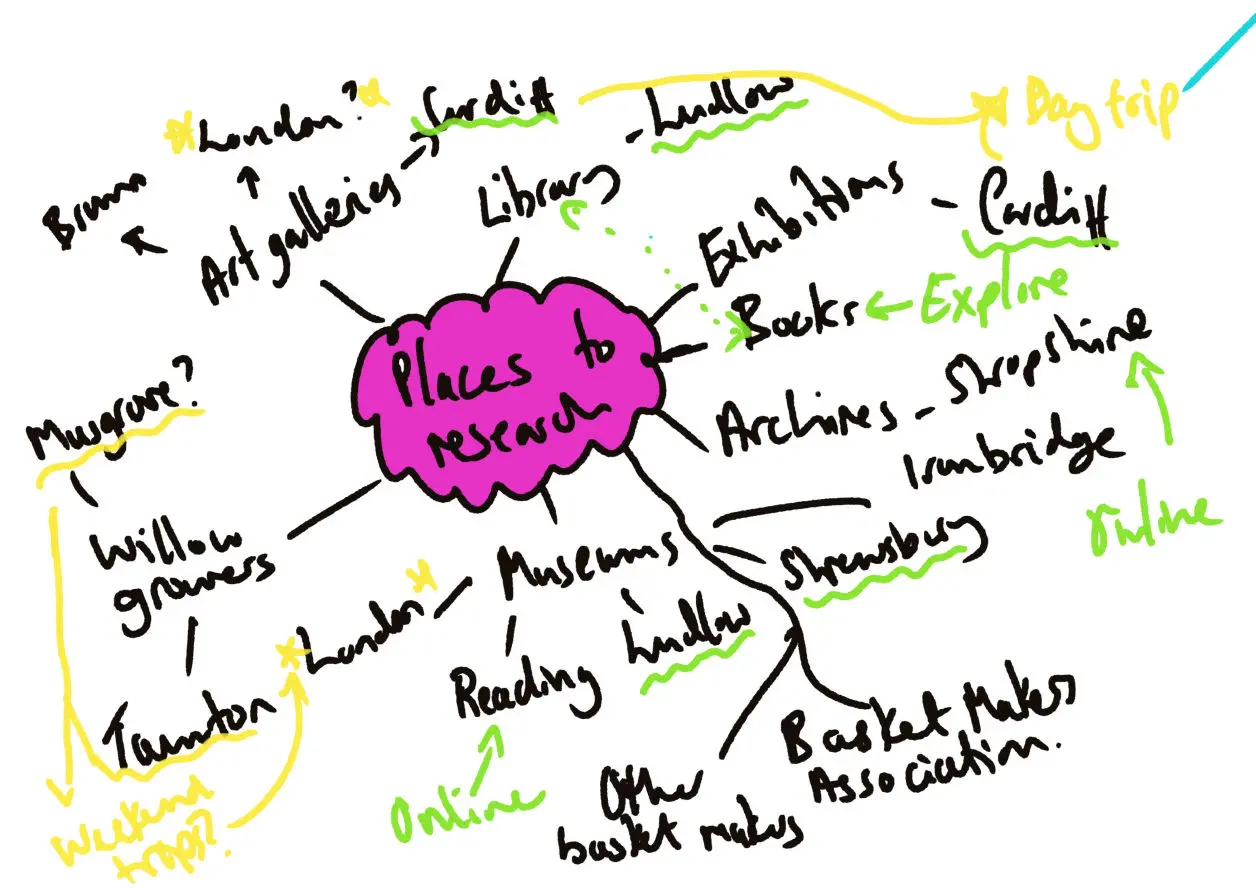 Places to
research
Art galleries
Brum
London?
Cardiff
Library
Ludlow
Exhibitions
Cardiff
Day trip
Books
Explore
Archives
Shropshire
Online
Museums
Ironbridge
Shrewsbury
Ludlow
Reading
Online
London
Basket Makers
Association.
Other
basket makers
Willow
growers
Musgrove?
Taunton
Weekend
trips?